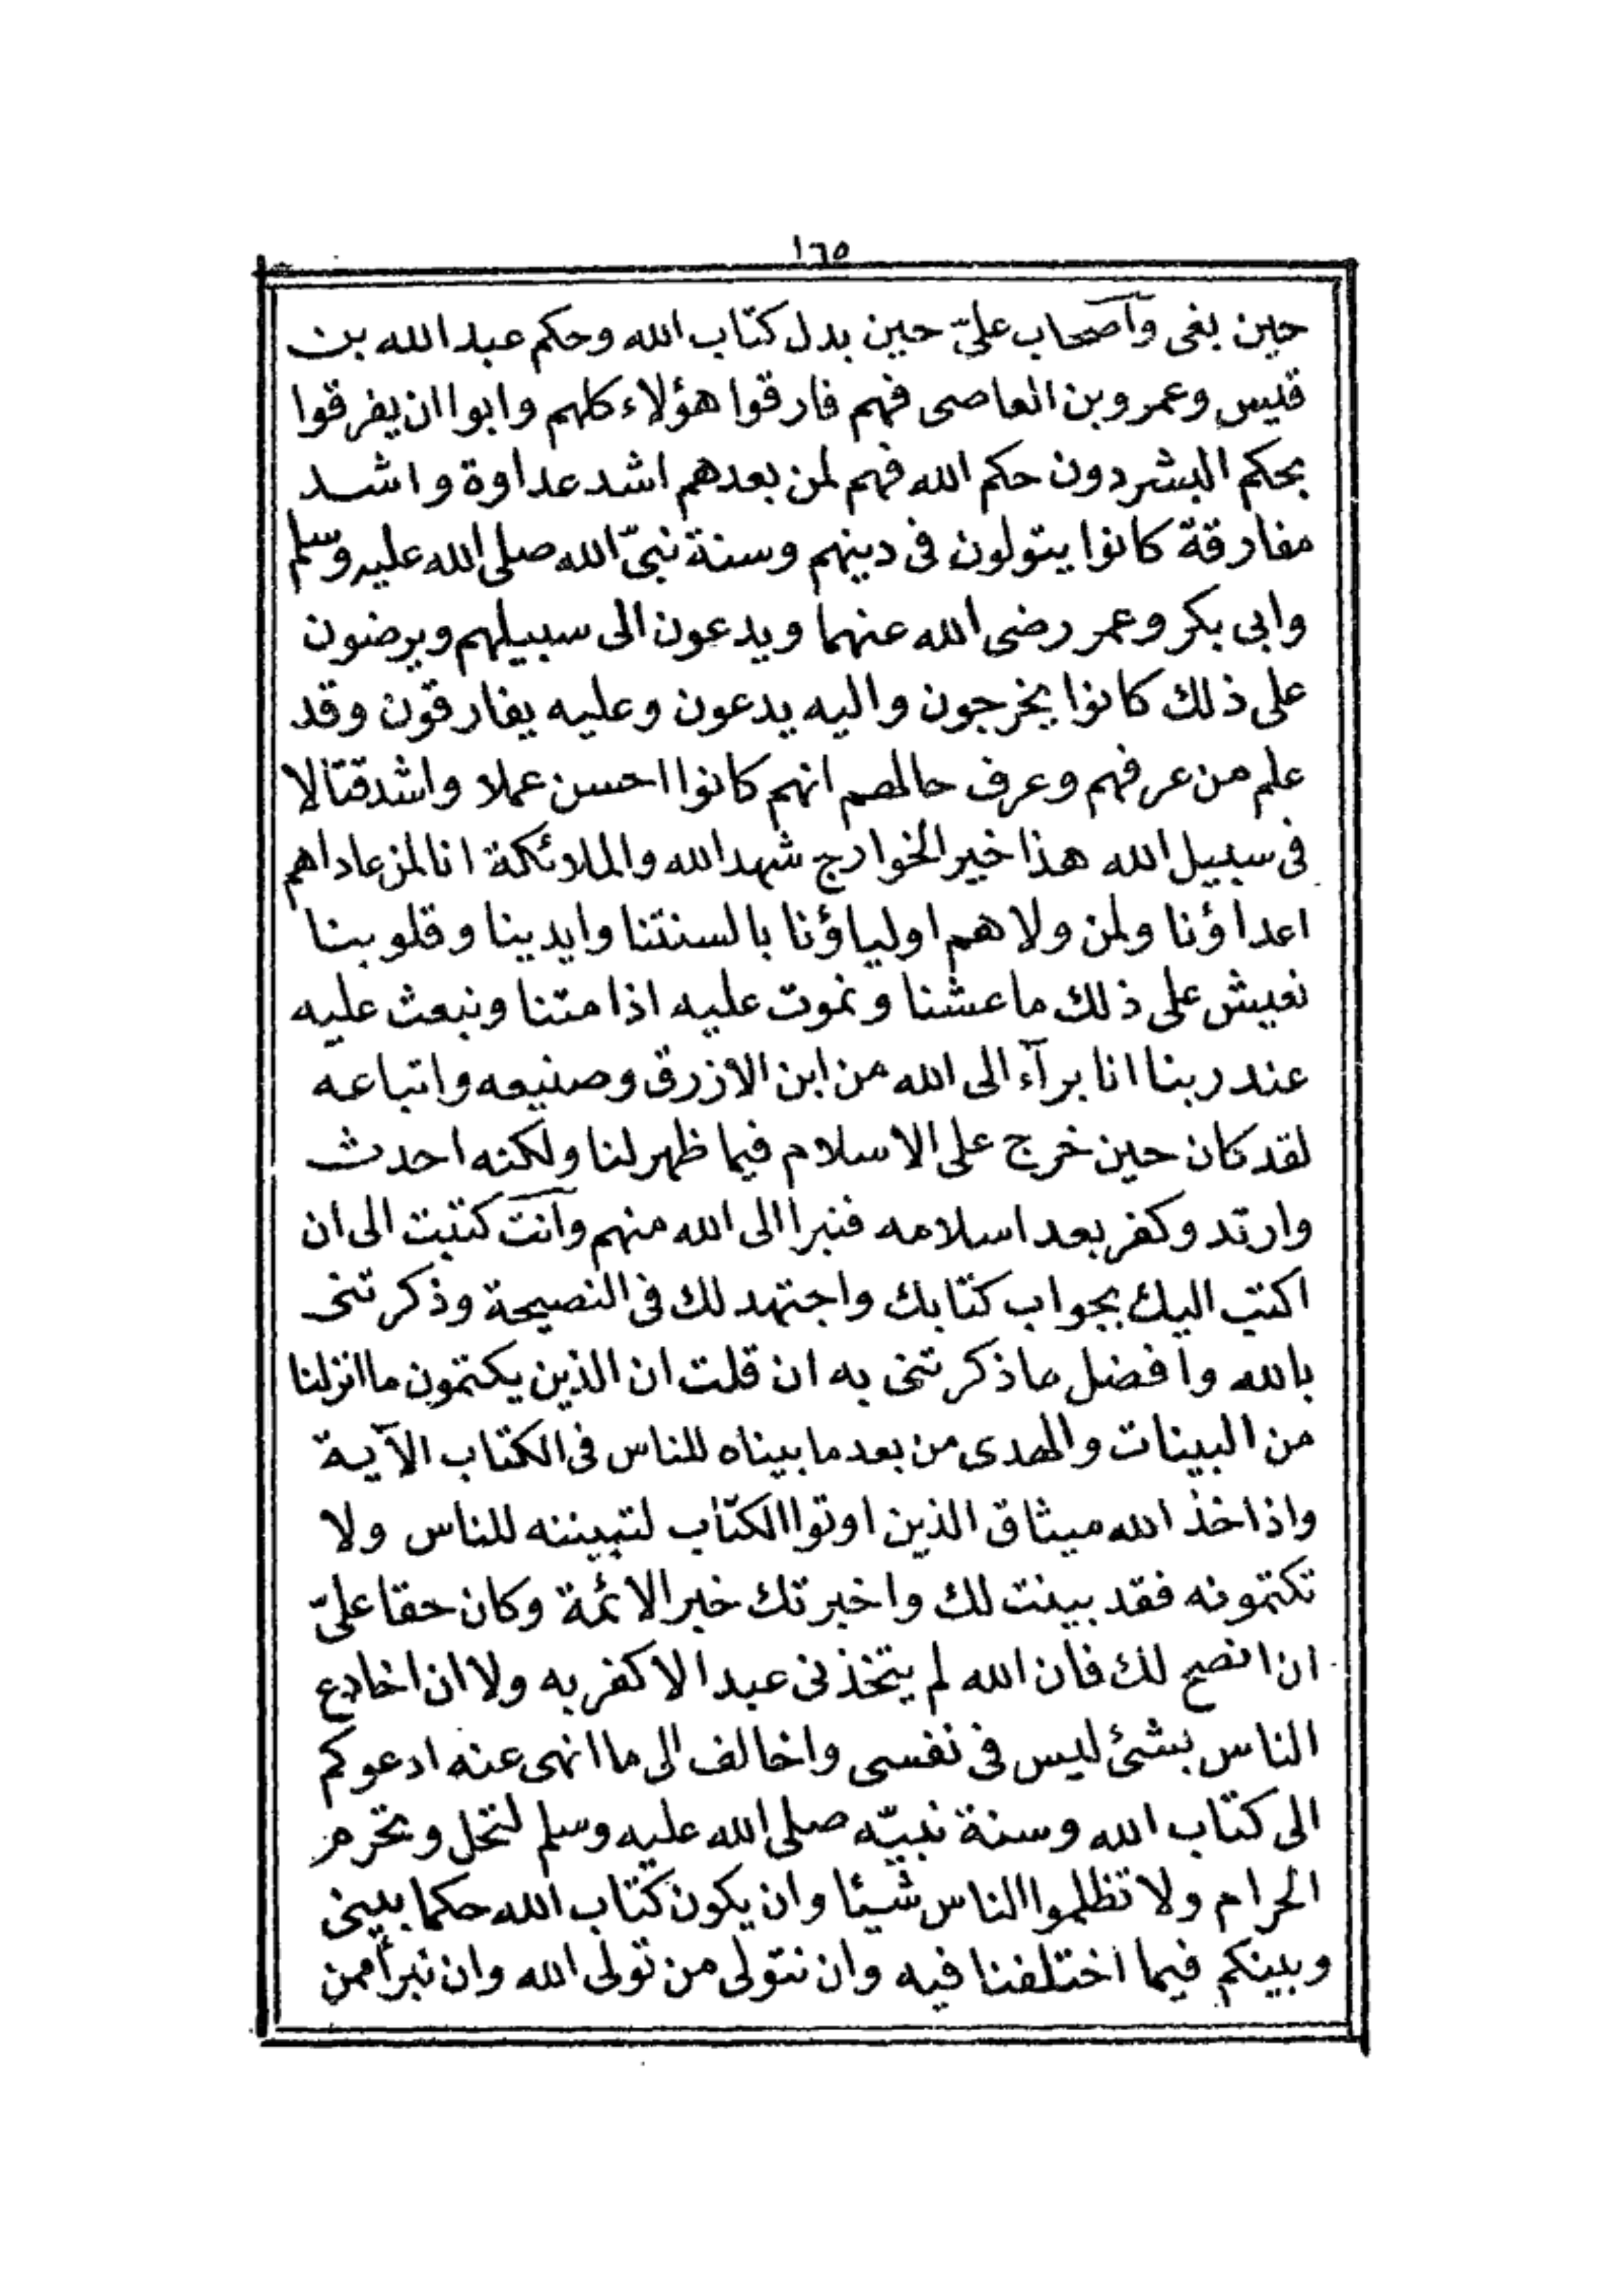 ١٦٥
حين بغى وأصحاب عليّ حين بدل كتاب الله وحكم عبد الله بن
قيس وعمرو بن العاصى فهم فارقوا هؤلاء كلهم وابوا ان يفرقوا
بحكم البشر دون حكم الله فهم لمن بعدهم اشد عداوة واشد
مفارقة كانوا يتولون فى دينهم وسنة نبيّ الله صلى الله عليه وسلم
وابى بكر وعمر رضى الله عنهما ويدعون الى سبيلهم ويرضون
على ذلك كانوا يخرجون واليه يدعون وعليه يفارقون وقد
علم من عرفهم وعرف حالهم انهم كانوا احسن عملا واشد قتالا
فى سبيل الله هذا خبر الخوارج شهد الله والملائكة انا لمن عاداهم
اعداؤنا ولمن ولاهم اولياؤنا بالسنتنا وايدينا وقلوبنا
نعيش على ذلك ما عشنا ونموت عليه اذا متنا ونبعث عليه
عند ربنا انا برآء الى الله من ابن الازرق وصنيعه واتباعه
لقد كان حين خرج على الاسلام فيما ظهر لنا ولكنه احدث
وارتد وكفر بعد اسلامه فنبرأ الى الله منهم وأنت كتبت الى ان
اكتب اليك بجواب كتابك واجتهد لك فى النصيحة وذكرتنى
بالله وافضل ما ذكرتنى به ان قلت ان الذين يكتمون ما انزلنا
من البينات والهدى من بعد ما بيناه للناس فى الكتاب الآية
واذ اخذ الله ميثاق الذين اوتوا الكتاب لتبيننه للناس ولا
تكتمونه فقد بينت لك واخبرتك خبر الائمة وكان حقا عليّ
ان انصح لك فان الله لم يتخذنى عبدا لاكفر به ولا ان اخادع
الناس بشئ ليس فى نفسى واخالف الى ما انهى عنه ادعوكم
الى كتاب الله وسنة نبيّه صلى الله عليه وسلم لتحل وتحرم
الحرام ولا تظلموا الناس شيئا وان يكون كتاب الله حكما بينى
وبينكم فيما اختلفنا فيه وان نتولى من تولى الله وان نبرأ ممن